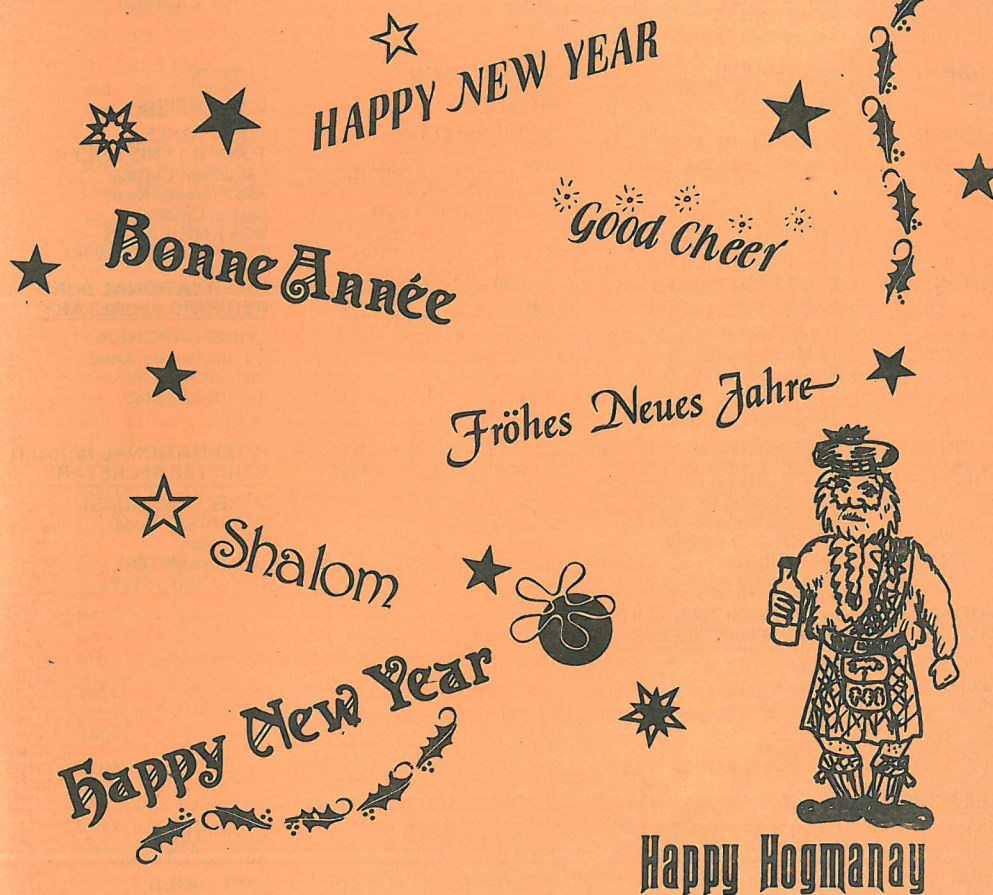 HAPPY NEW YEAR
Good Cheer
Bonne Année
Fröhes Neues Jahre
Shalom
Happy New Year
Happy Hogmanay